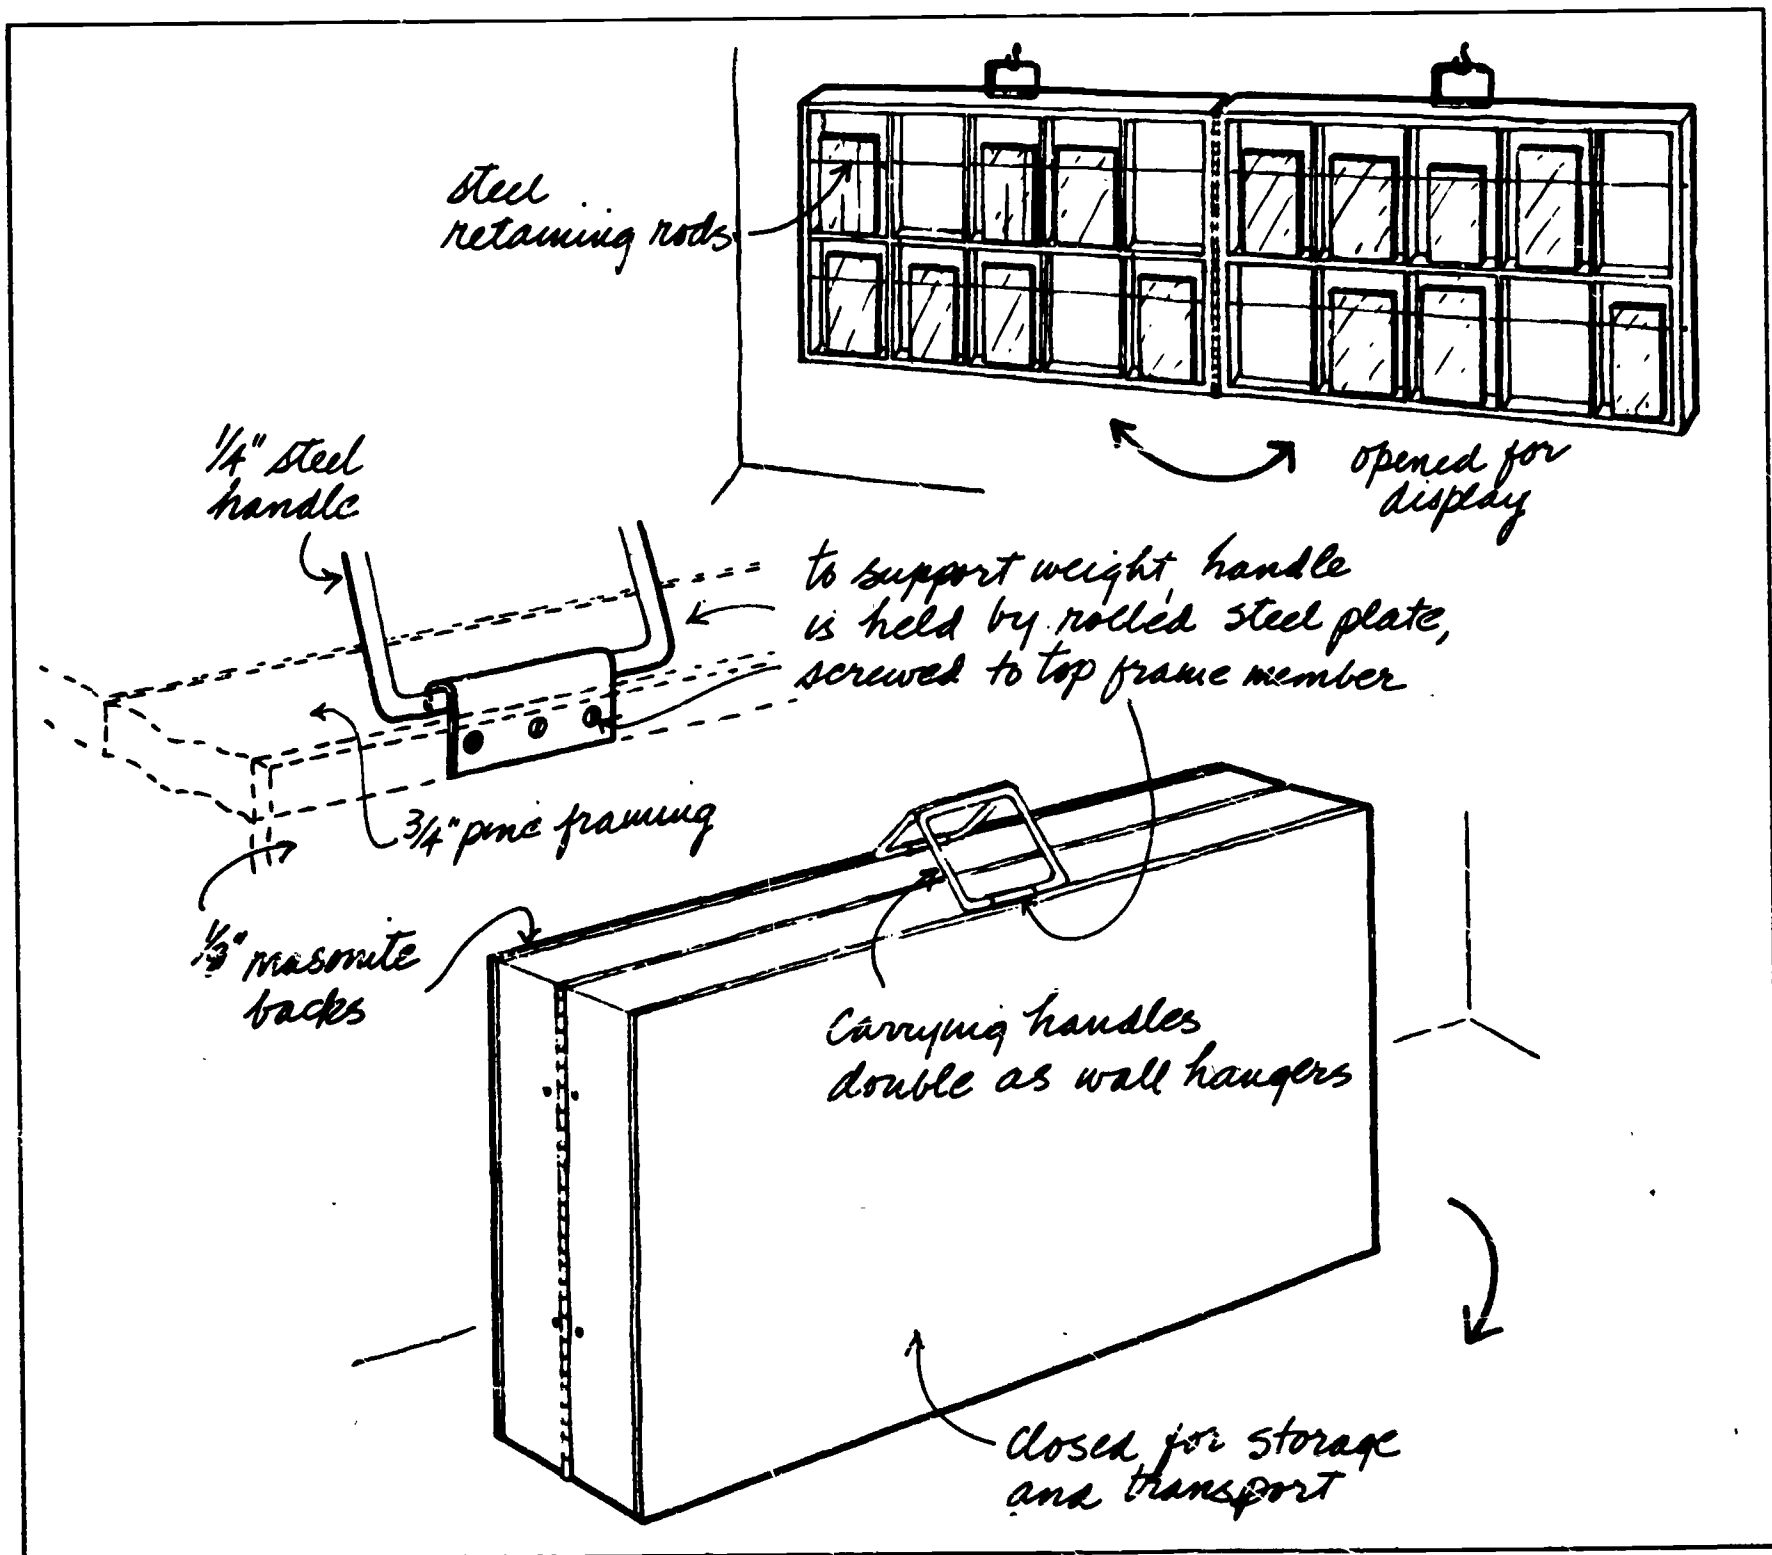 steel
retaining rods
opened for
display
1/4" steel
handle
to support weight, handle
is held by rolled steel plate,
screwed to top frame member
3/4" pine framing
masonite
backs
Carrying handles
double as wall hangers
closed for storage
and transport